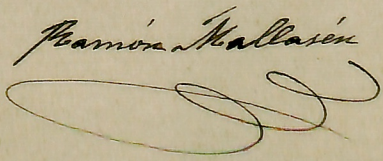 Ramón Mallasén